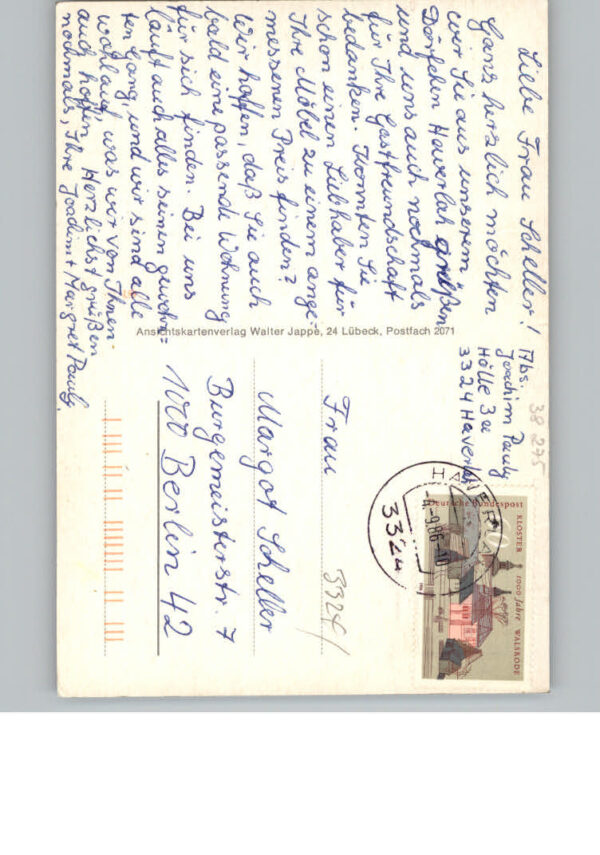 Liebe Frau Scheller!
Ganz herzlich möchten
wir Sie aus unserem
Dörfchen Haverlah grüßen
und uns auch nochmals
für Ihre Gastfreundschaft
bedanken. Konnten Sie
schon einen Liebhaber für
Ihre Möbel zu einem ange-
messenen Preis finden?
Wir hoffen, daß Sie auch
bald eine passende Wohnung
für sich finden. Bei uns
läuft auch alles seinen gewohn=
ten Gang, und wir sind alle
wohlauf, was wir von Ihnen
auch hoffen. Herzlichst grüßen
nochmals, Ihre Joachim + Margret Pauly.
Ansichtskartenverlag Walter Jappe, 24 Lübeck, Postfach 2071
38 275
Abs.
Joachim Pauly
Hölle 3a
3324 Haverlah
HAVERLAH
-4.-9.86-10
3324
Deutsche Bundespost
60
KLOSTER
1000 Jahre
WALSRODE
3324/
Frau
Margot Scheller
Burgemeisterstr. 7
1000 Berlin 42